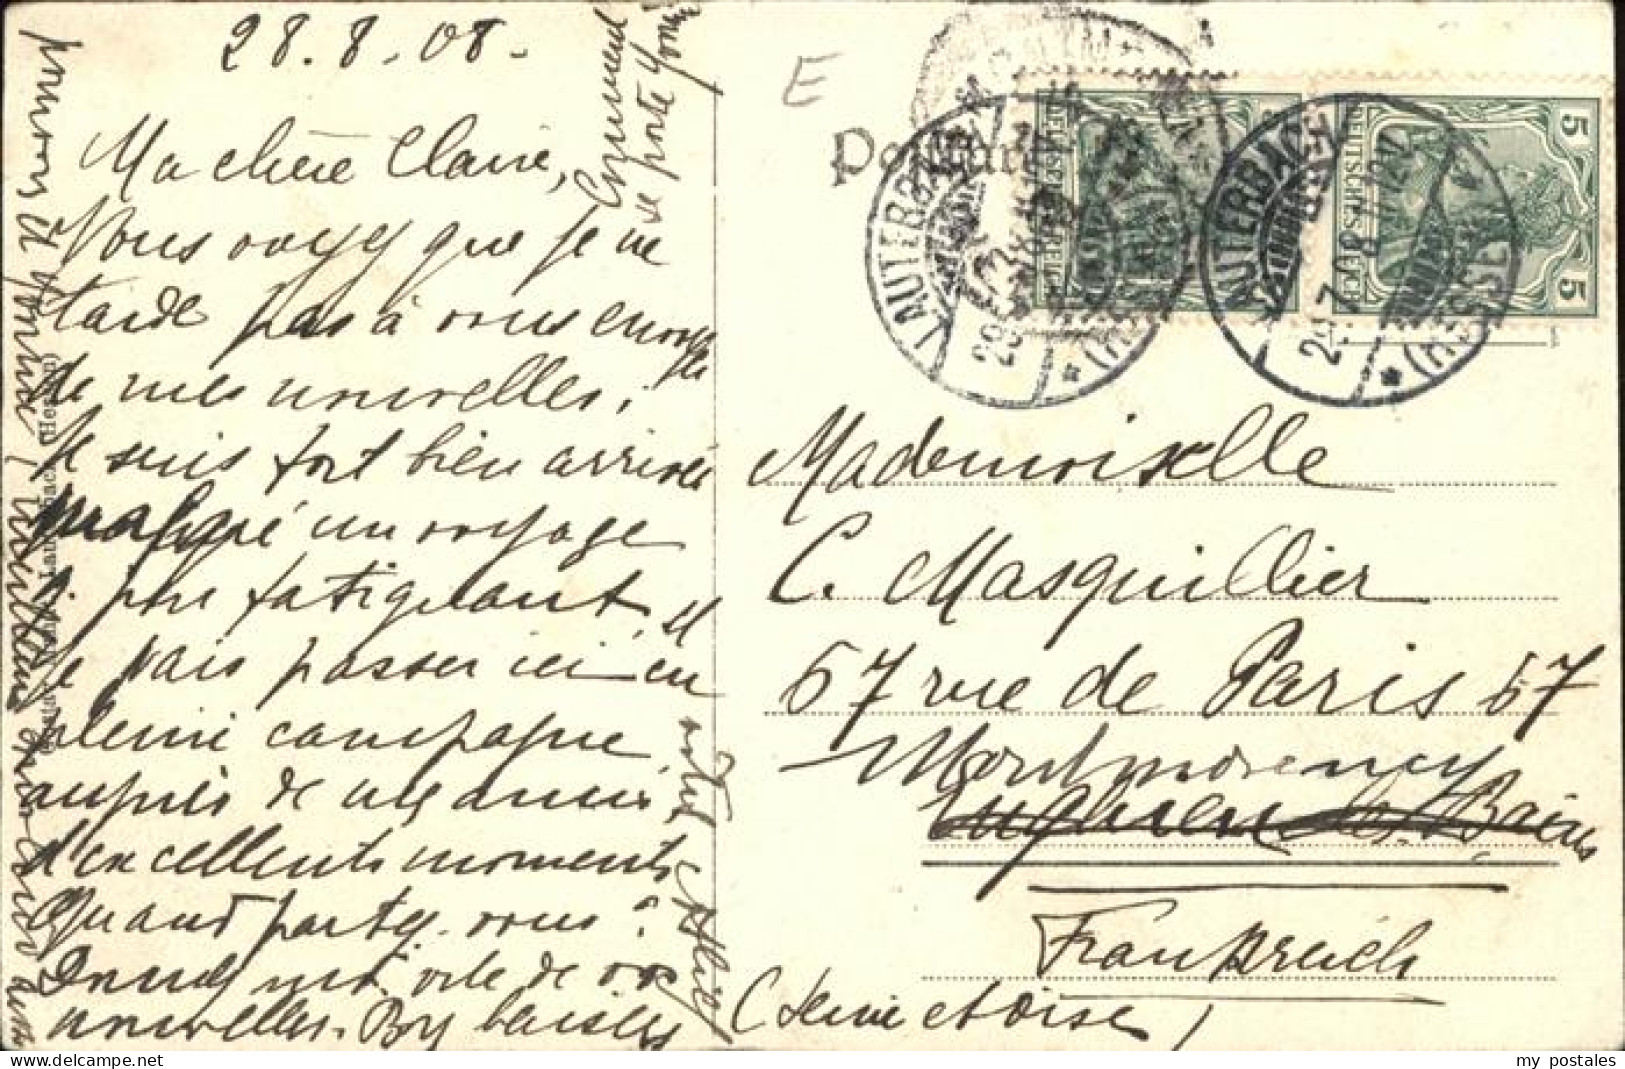 28.8.08.
Ma chère Claire,
Vous voyez que je ne
tarde pas à vous envoyer
de mes nouvelles.
Je suis fort bien arrivée
malgré un voyage
fatiguant, et
je vais passer ici en
pleine campagne
auprès de mes amies
d'excellents moments
Quand partez-vous ?
Donnez moi vite de vos
nouvelles. Bons baisers
Comment
se porte
E
Postkarte
LAUTERBACH
* (HESSEN)
LAUTERBACH
29.7.08
* (HESSEN) *
DEUTSCHES REICH
DEUTSCHES REICH
5
5
Mademoiselle
C. Masquillier
57 rue de Paris 57
Montmorency
Enghien les Bains
Frankreich
(Seine et Oise)
my postales